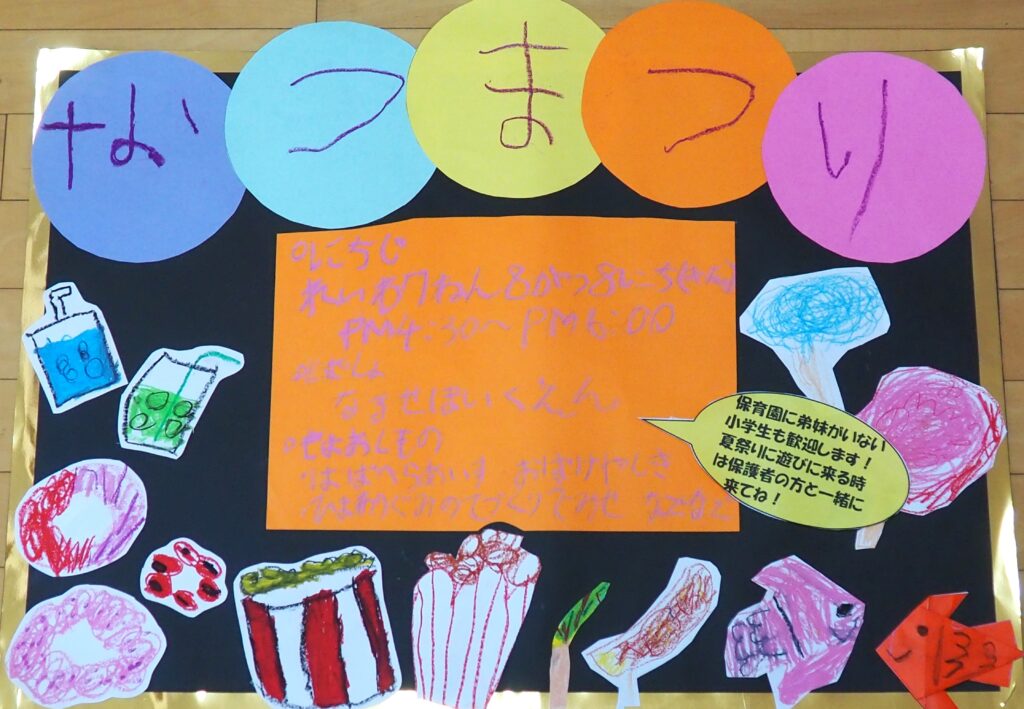 なつまつり
●にちじ
れいわ7ねん8がつ8にち(きん)
PM4:30〜PM6:00
●ばしょ
ながせほいくえん
●もよおしもの
おばけやしき
ひまわりぐみのてづくりおみせ などなど
保育園に弟妹がいない
小学生も歓迎します！
夏祭りに遊びに来る時
は保護者の方と一緒に
来てね！